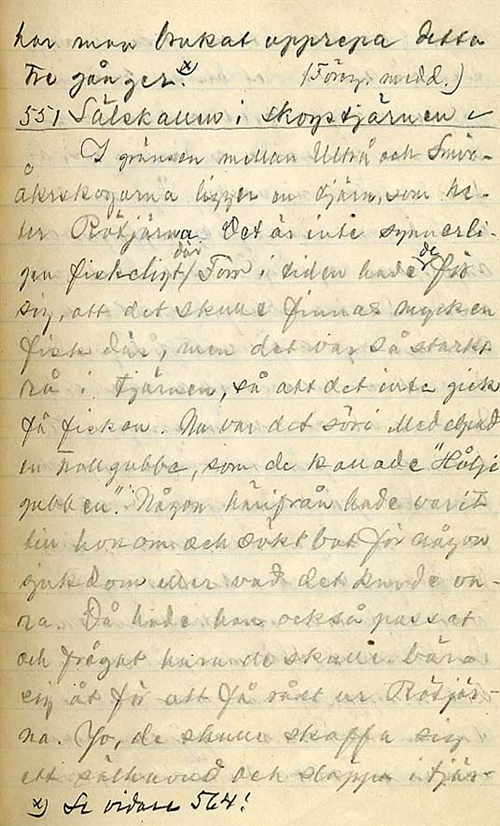 har man brukat upprepa detta
tre gånger. x) (Föreg. medd.)
551 Sälskallen i skogstjärnen
I gränsen mellan Ultrå och Små-
åkrskogarna ligger en tjärn, som he-
ter Rötjärna. Det är inte synnerli-
gen fiskeligt där. Förr i tiden hade de för
sig, att det skulle finnas mycken
fisk där, men det var så starkt
rå i tjärnen, så att det inte gick
få fisken. Nu var det söri Medelpad
en trollgubbe, som de kallade "Hölje
gubben". Någon härifrån hade varit
till honom och sökt bot för någon
sjukdom eller vad det kunde va-
ra. Då hade han också passat
och frågat huru de skulle bära
sig åt för att få rået ur Rötjär-
na. Jo, de skulle skaffa sig
ett sälhuvud och släppa i tjär-
x) Se vidare 564!